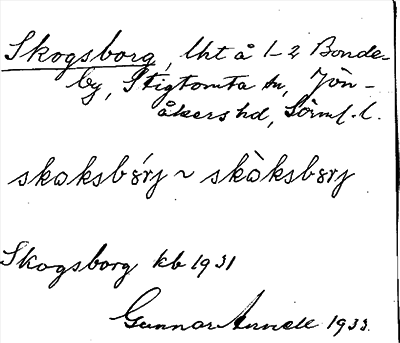 Skogsborg, lht å 1-2 Bonde-
by, Stigtomta sn, Jön-
åkers hd, Sörml. l.
skɷksbɷ́rj ~ skɷ̀ksbɷrj
Skogsborg kb 1931
Gunnar Arnell 1933.